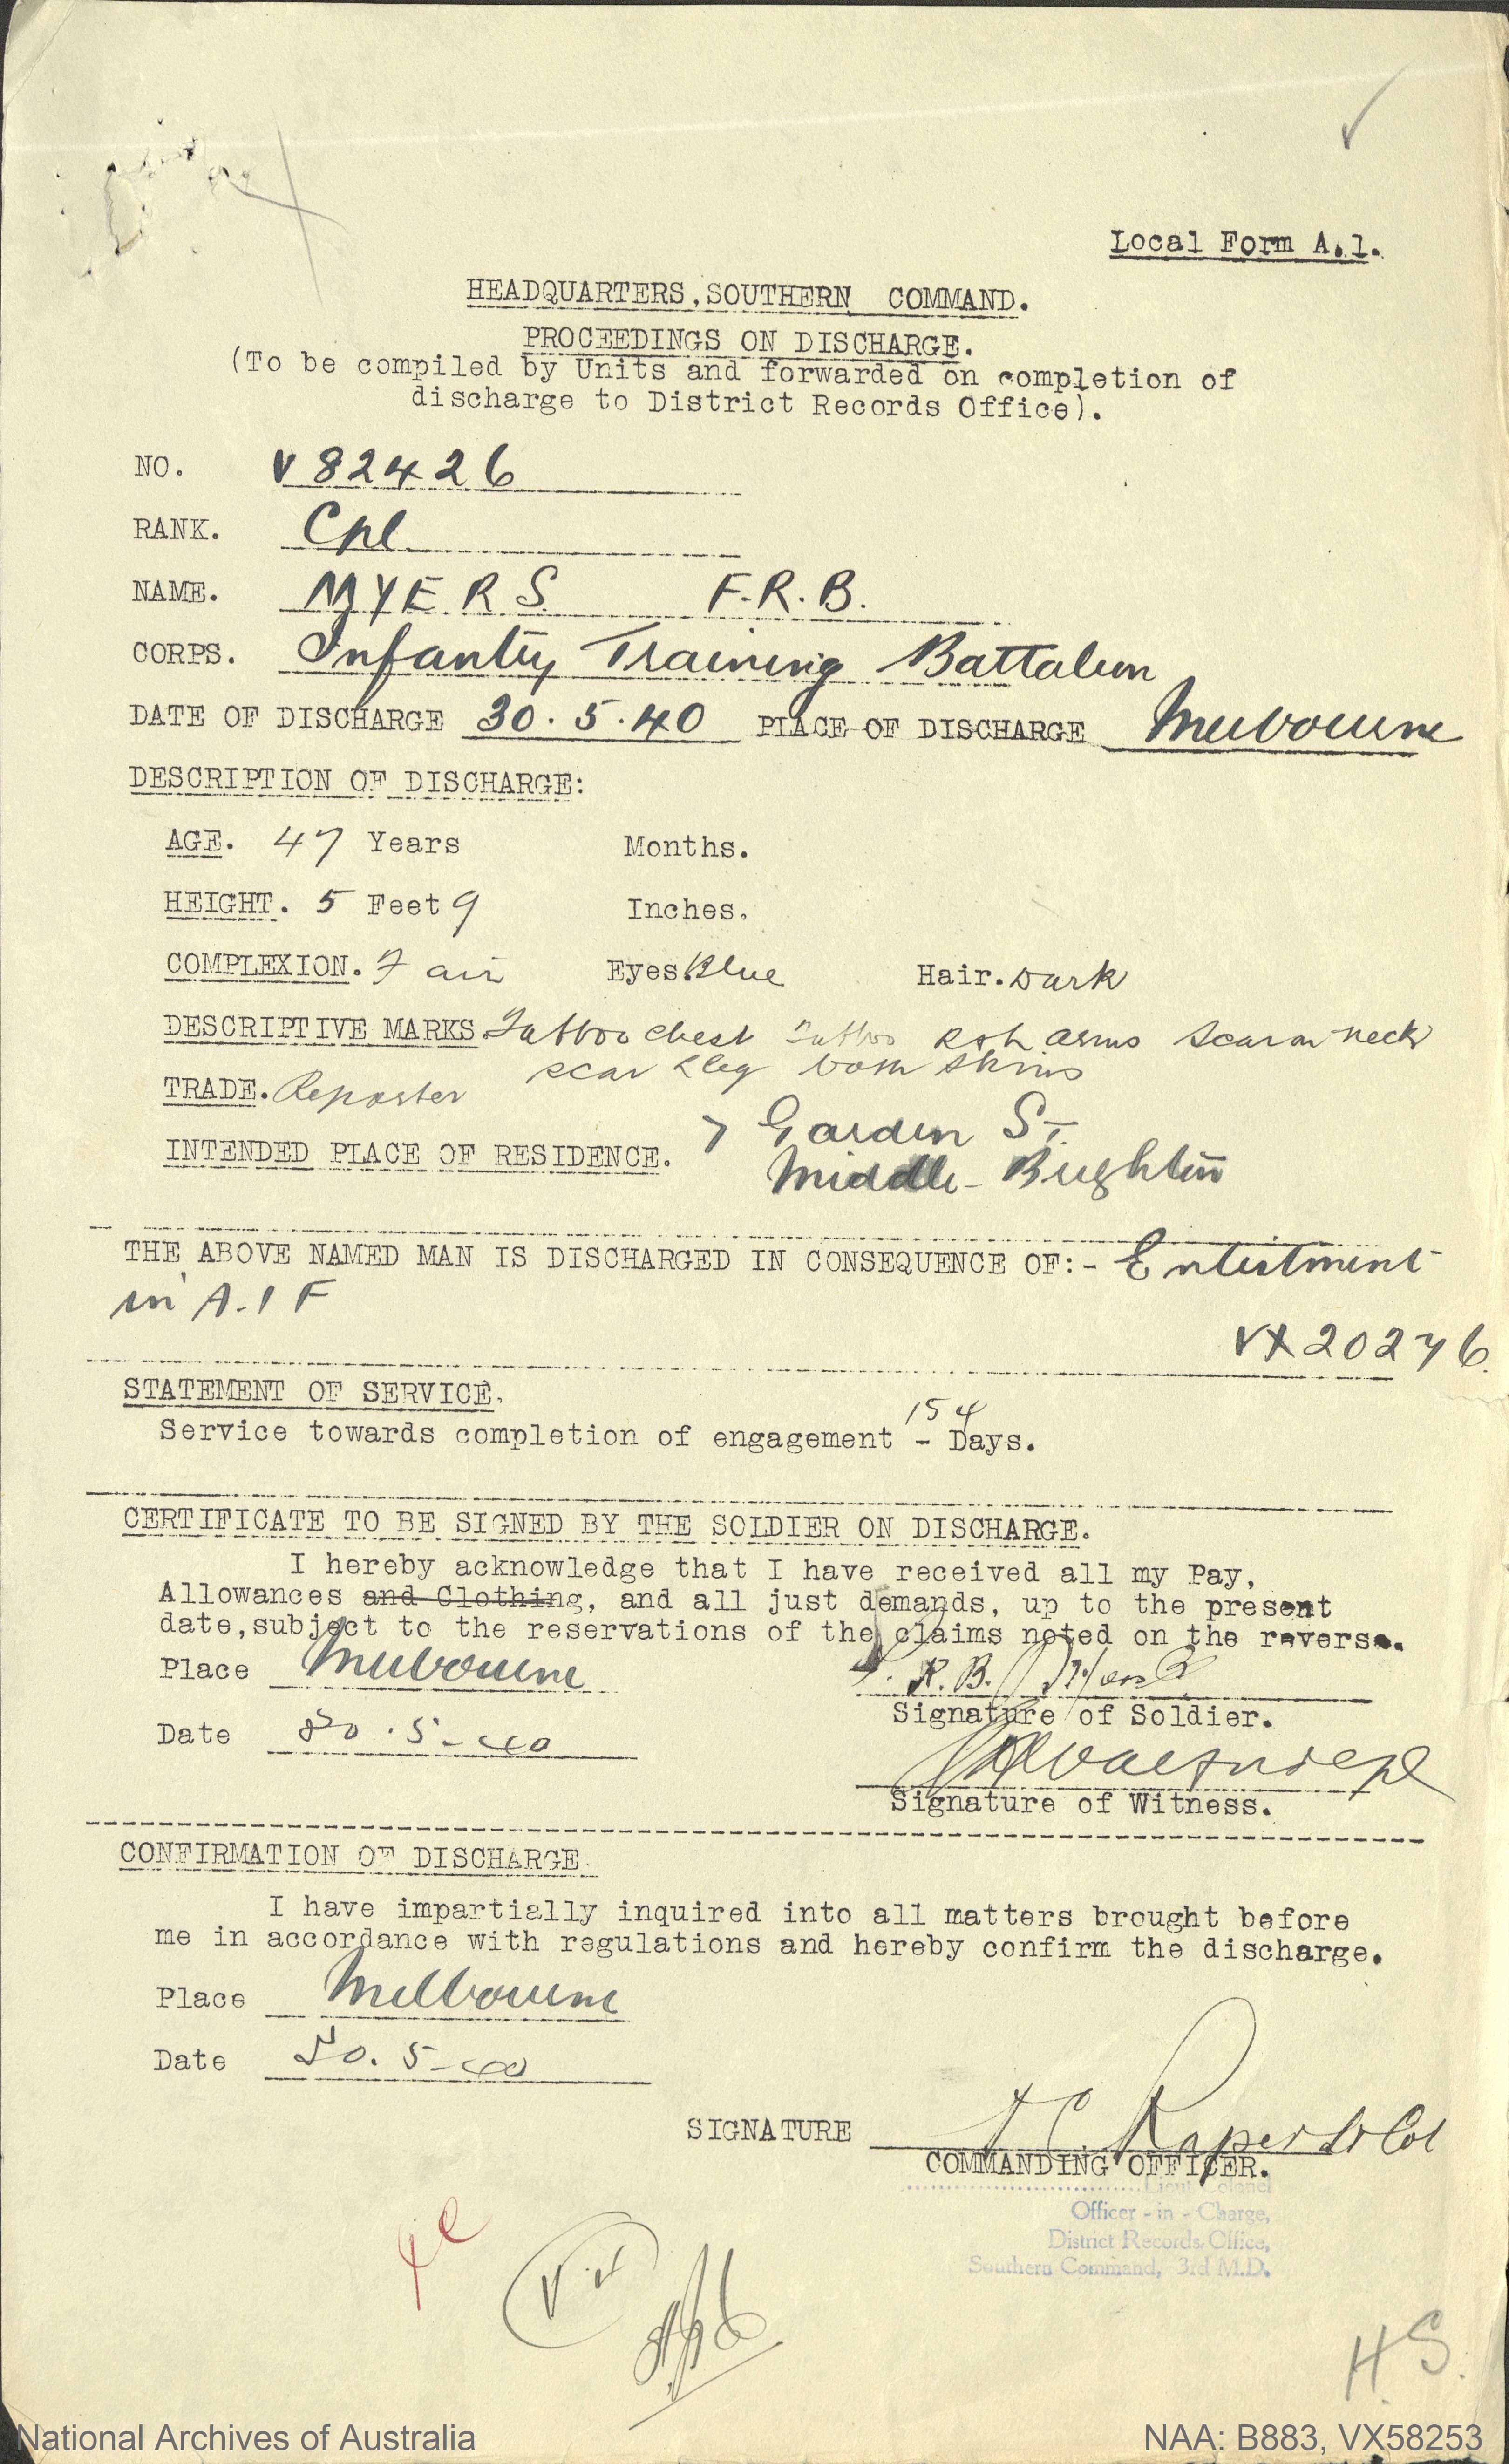 Local Form A.1.
HEADQUARTERS, SOUTHERN COMMAND.
PROCEEDINGS ON DISCHARGE.
(To be compiled by Units and forwarded on completion of
discharge to District Records Office).
NO. V 82426
RANK. Cpl
NAME. MYERS F.R.B.
CORPS. Infantry Training Battalion
DATE OF DISCHARGE 30.5.40 PLACE OF DISCHARGE Melbourne
DESCRIPTION OF DISCHARGE:
AGE. 47 Years Months.
HEIGHT. 5 Feet 9 Inches.
COMPLEXION. Fair Eyes. Blue Hair. Dark
DESCRIPTIVE MARKS Tattoo chest Tattoo R & L arms Scar on neck
scar L leg both shins
TRADE. Reporter
7 Garden St.
INTENDED PLACE OF RESIDENCE. Middle-Brighton
THE ABOVE NAMED MAN IS DISCHARGED IN CONSEQUENCE OF:- Enlistment
in A.I F
VX20276.
STATEMENT OF SERVICE.
Service towards completion of engagement - 154 Days.
CERTIFICATE TO BE SIGNED BY THE SOLDIER ON DISCHARGE.
I hereby acknowledge that I have received all my Pay,
Allowances and Clothing, and all just demands, up to the present
date, subject to the reservations of the claims noted on the reverse.
Place Melbourne R.B.
Signature of Soldier.
Date 30.5-40
Signature of Witness.
CONFIRMATION OF DISCHARGE.
I have impartially inquired into all matters brought before
me in accordance with regulations and hereby confirm the discharge.
Place Melbourne
Date 30.5-40
SIGNATURE Raper Lt Col
COMMANDING OFFICER.
Lieut Colonel
Officer - in - Charge,
District Records Office,
Southern Command, 3rd M.D.
H.S.
National Archives of Australia NAA: B883, VX58253